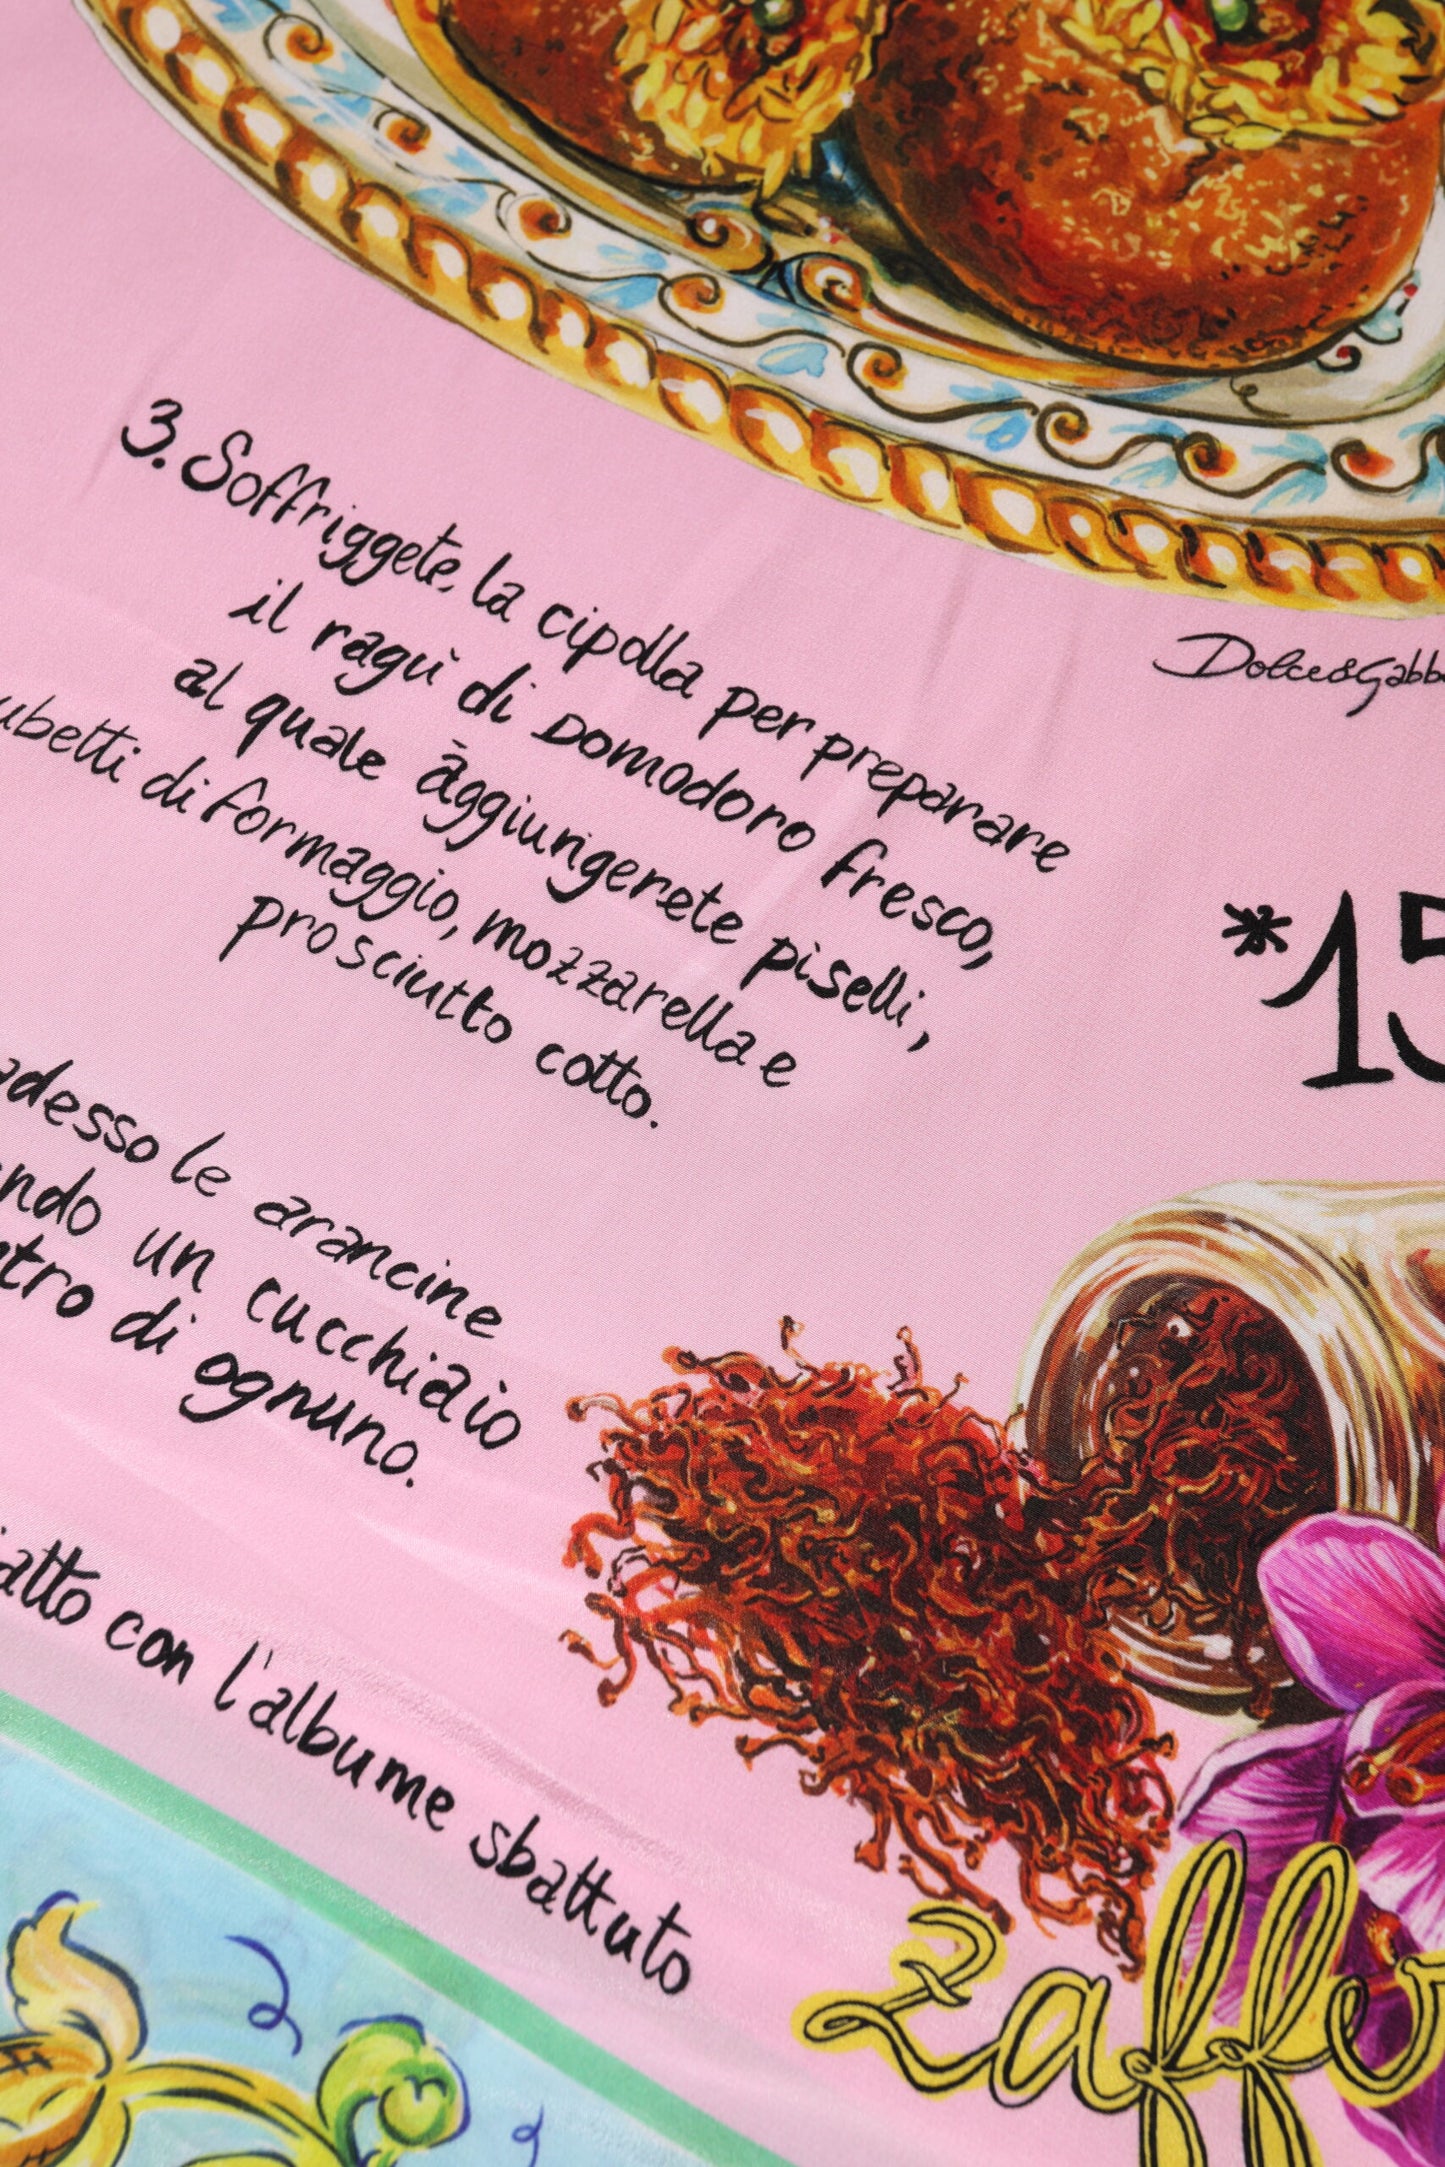 3. Soffriggete, la cipolla per preparare
il ragù di pomodoro fresco,
al quale aggiungerete piselli,
ubetti di formaggio, mozzarella e
prosciutto cotto.
adesso le arancine
ndo un cucchiaio
ntro di ognuno.
atto con l'albume sbattuto
Dolce&Gabb
*15
Zaffer